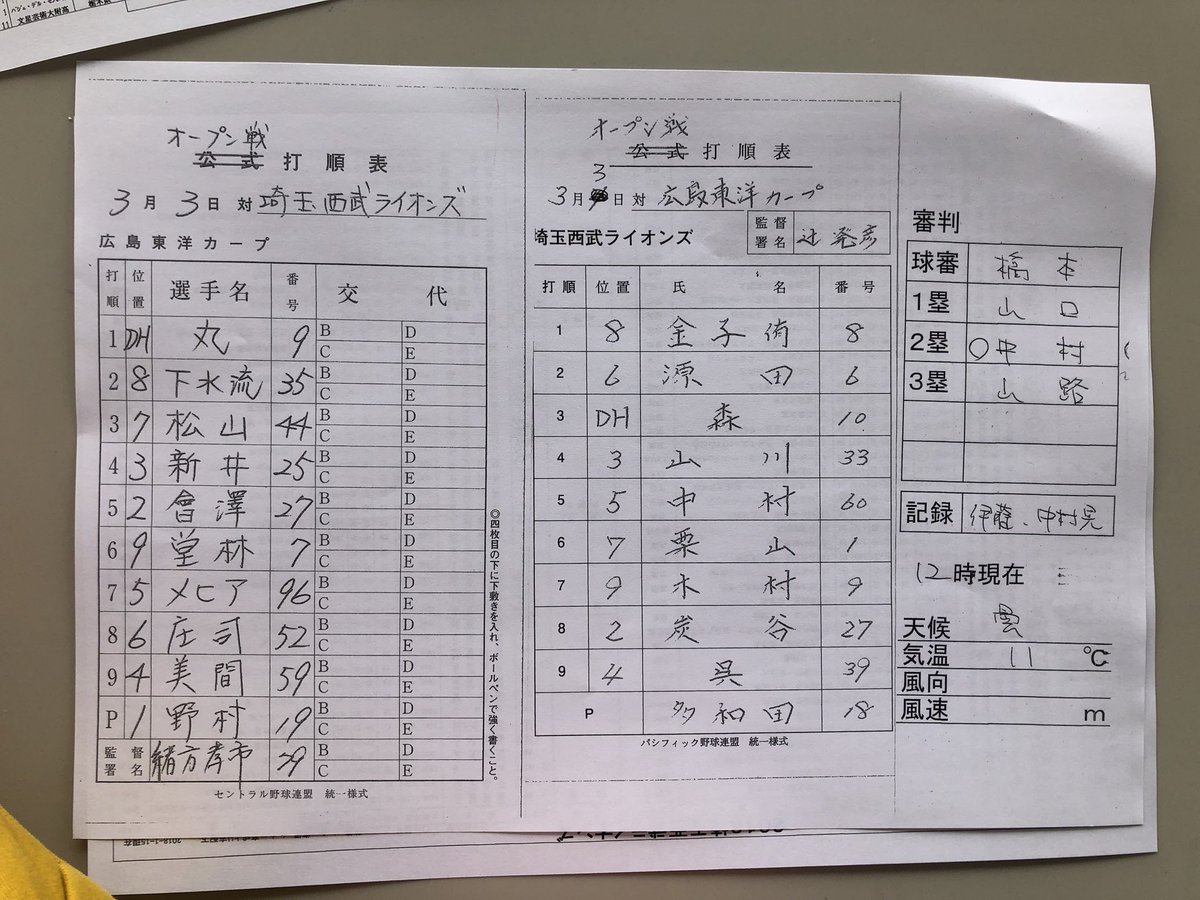 文星芸術大附高
オープン戦
公式 打順表
3月 3日 対 埼玉西武ライオンズ
広島東洋カープ
打順 位置 選手名 番号 交代
1 DH 丸 9 B D C E
2 8 下水流 35 B D C E
3 7 松山 44 B D C E
4 3 新井 25 B D C E
5 2 會澤 27 B D C E
6 9 堂林 7 B D C E
7 5 メヒア 96 B D C E
8 6 庄司 52 B D C E
9 4 美間 59 B D C E
P 1 野村 19 B D C E
監督署名 緒方孝市 79 B D C E
セントラル野球連盟 統一様式
◎四枚目の下に下敷きを入れ、ボールペンで強く書くこと。
オープン戦
公式 打順表
3
3月 日 対 広島東洋カープ
埼玉西武ライオンズ 監督署名 辻発彦
打順 位置 氏名 番号
1 8 金子侑 8
2 6 源田 6
3 DH 森 10
4 3 山川 33
5 5 中村 60
6 7 栗山 1
7 9 木村 9
8 2 炭谷 27
9 4 呉 39
P 多和田 18
パシフィック野球連盟 統一様式
審判
球審 橋本
1塁 山口
2塁 ○中村
3塁 山路
記録 伊藤、中村晃
12時現在
天候 雲
気温 11 ℃
風向
風速 m